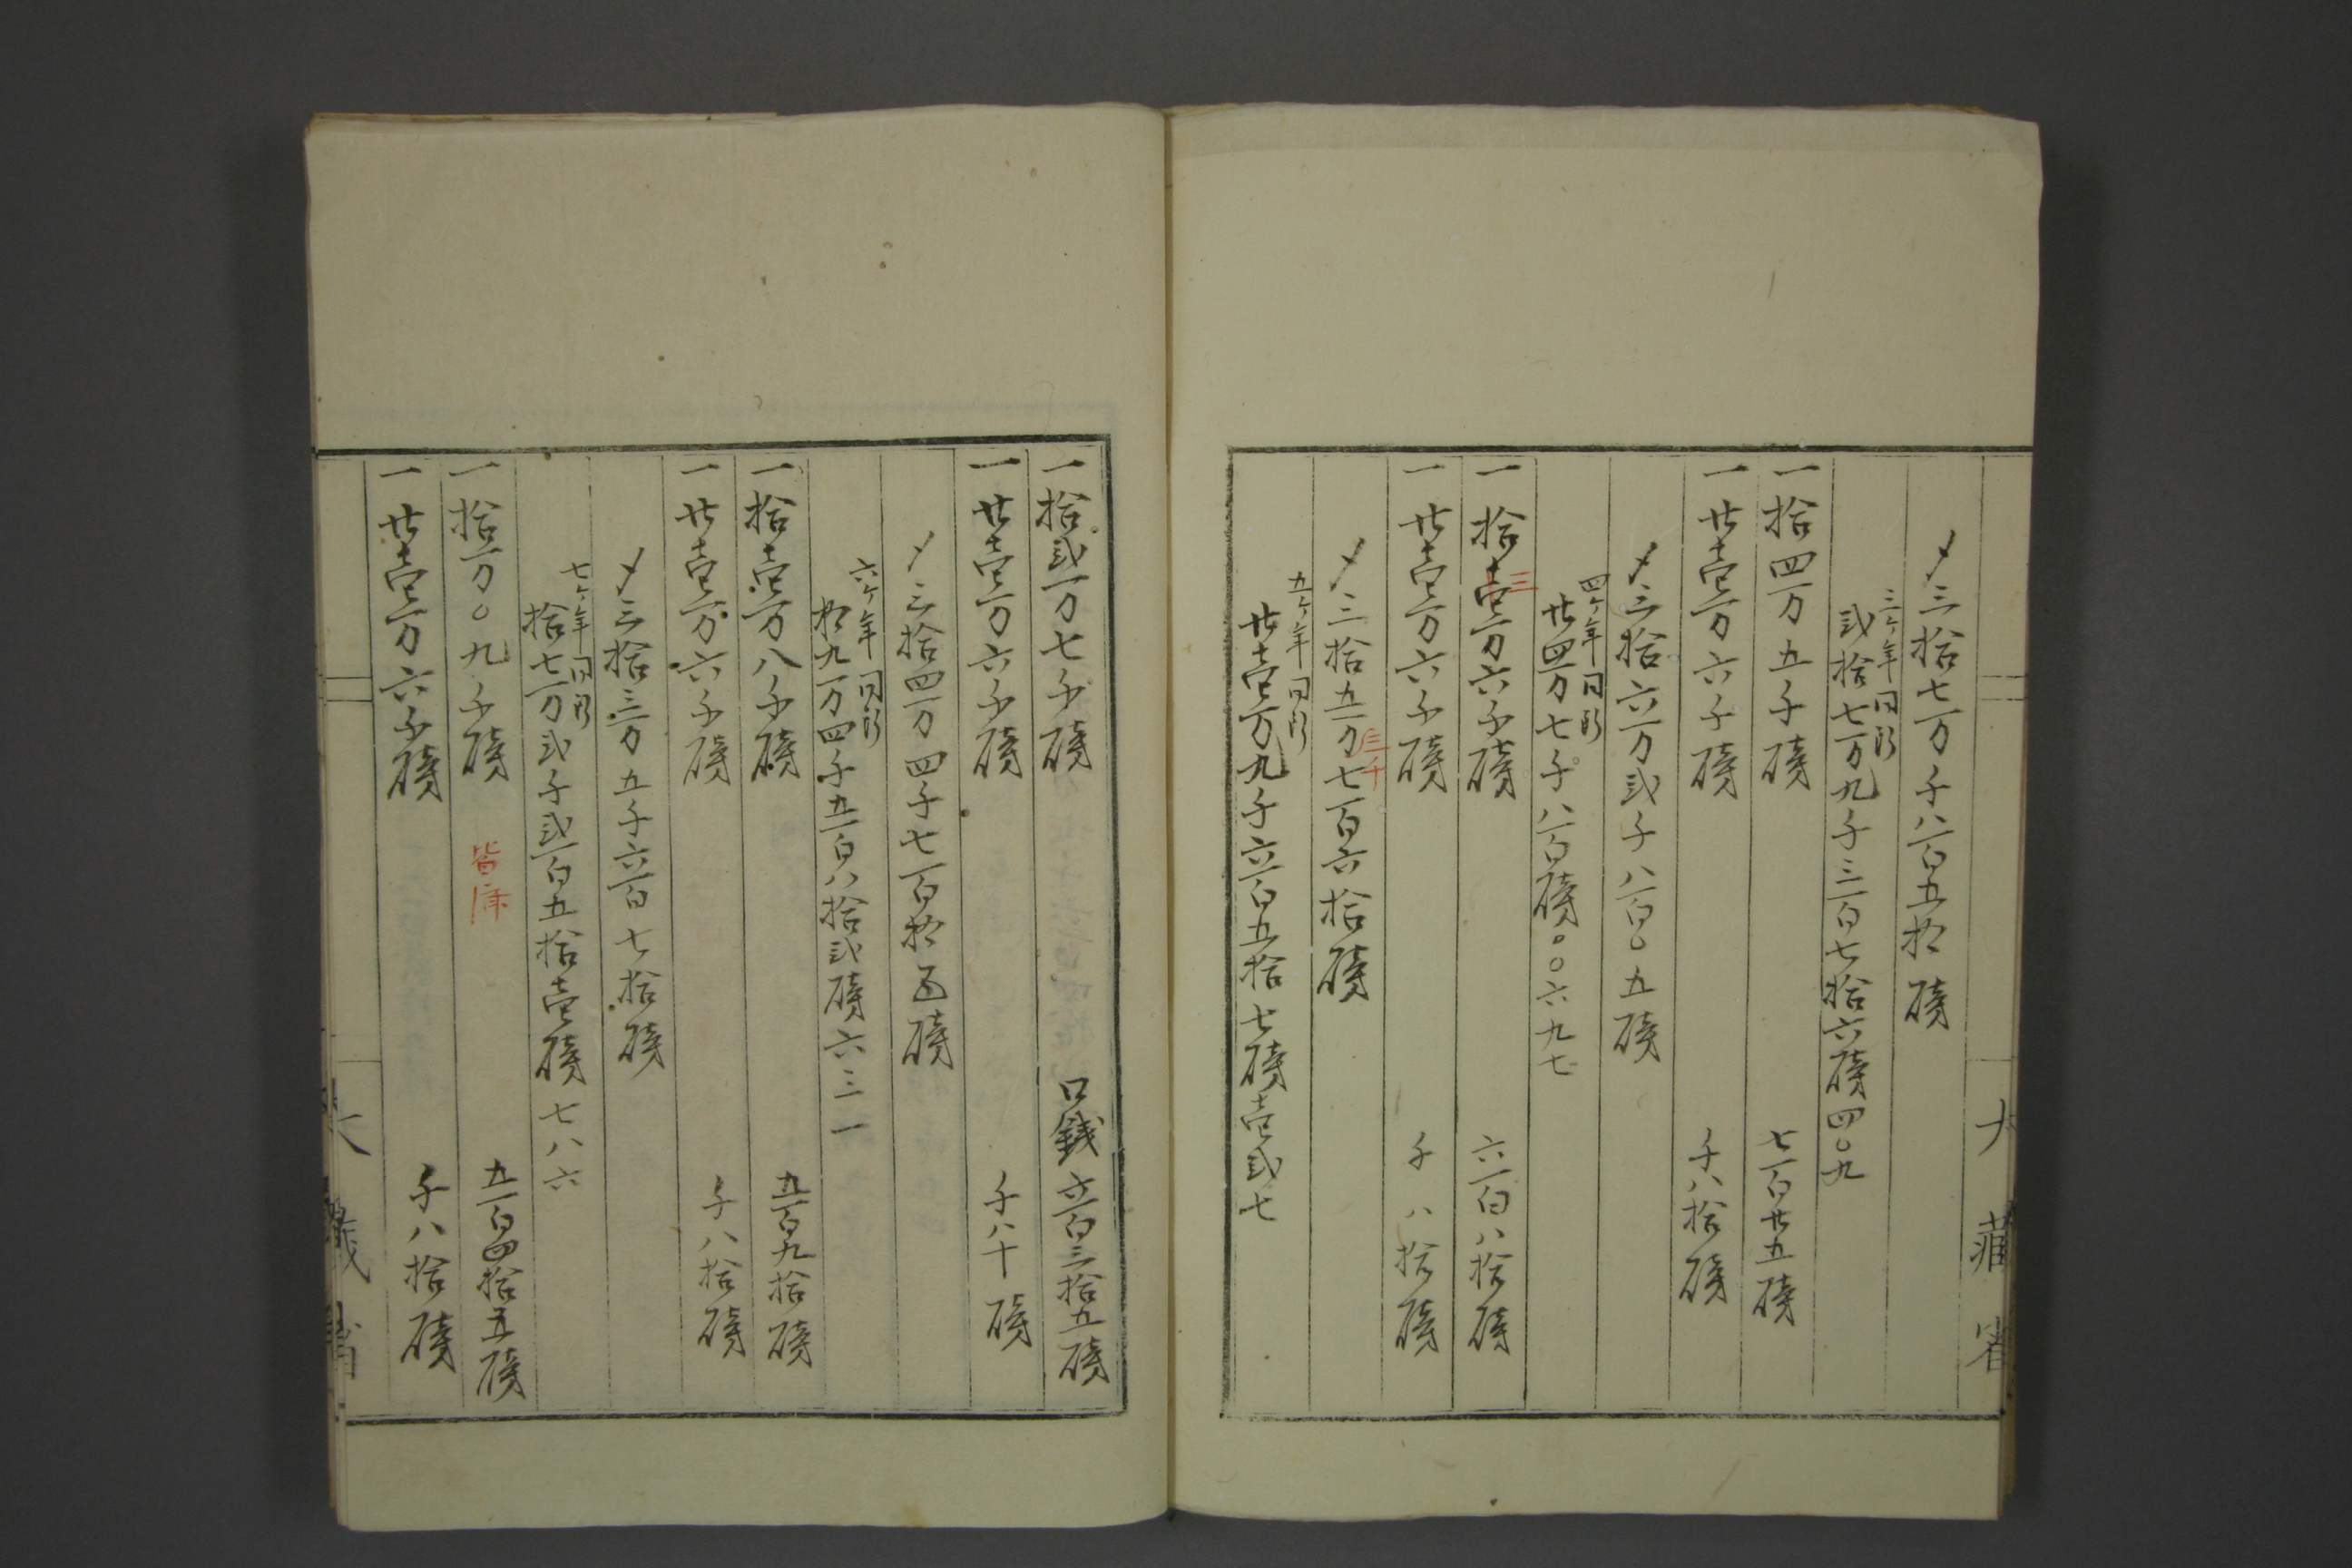 〆三拾七万千八百五拾磅
三ケ年同断
弐拾七万九千三百七拾六磅四〇九
一拾四万五千磅 七百廿五磅
一廿壱万六千磅 千八拾磅
〆三拾六万弐千八百〇五磅
四ケ年同断
廿四万七千八百磅〇〇六九七
一拾壱三万六千磅 六百八拾磅
一廿壱万六千磅 千八拾磅
〆三拾五万三千七百六拾磅
五ケ年同断
廿壱万九千六百五拾七磅壱弐七
大蔵省
一拾弐万七千磅 口銭六百三拾五磅
一廿壱万六千磅 千八十磅
〆三拾四万四千七百拾五磅
六ケ年同断
拾九万四千五百八拾弐磅六三一
一拾壱万八千磅 五百九拾磅
一廿壱万六千磅 千八拾磅
〆三拾三万五千六百七拾磅
七ケ年同断
拾七万弐千弐百五拾壱磅七八六
一拾万〇九千磅 皆済 五百四拾五磅
一廿壱万六千磅 千八拾磅
大蔵省